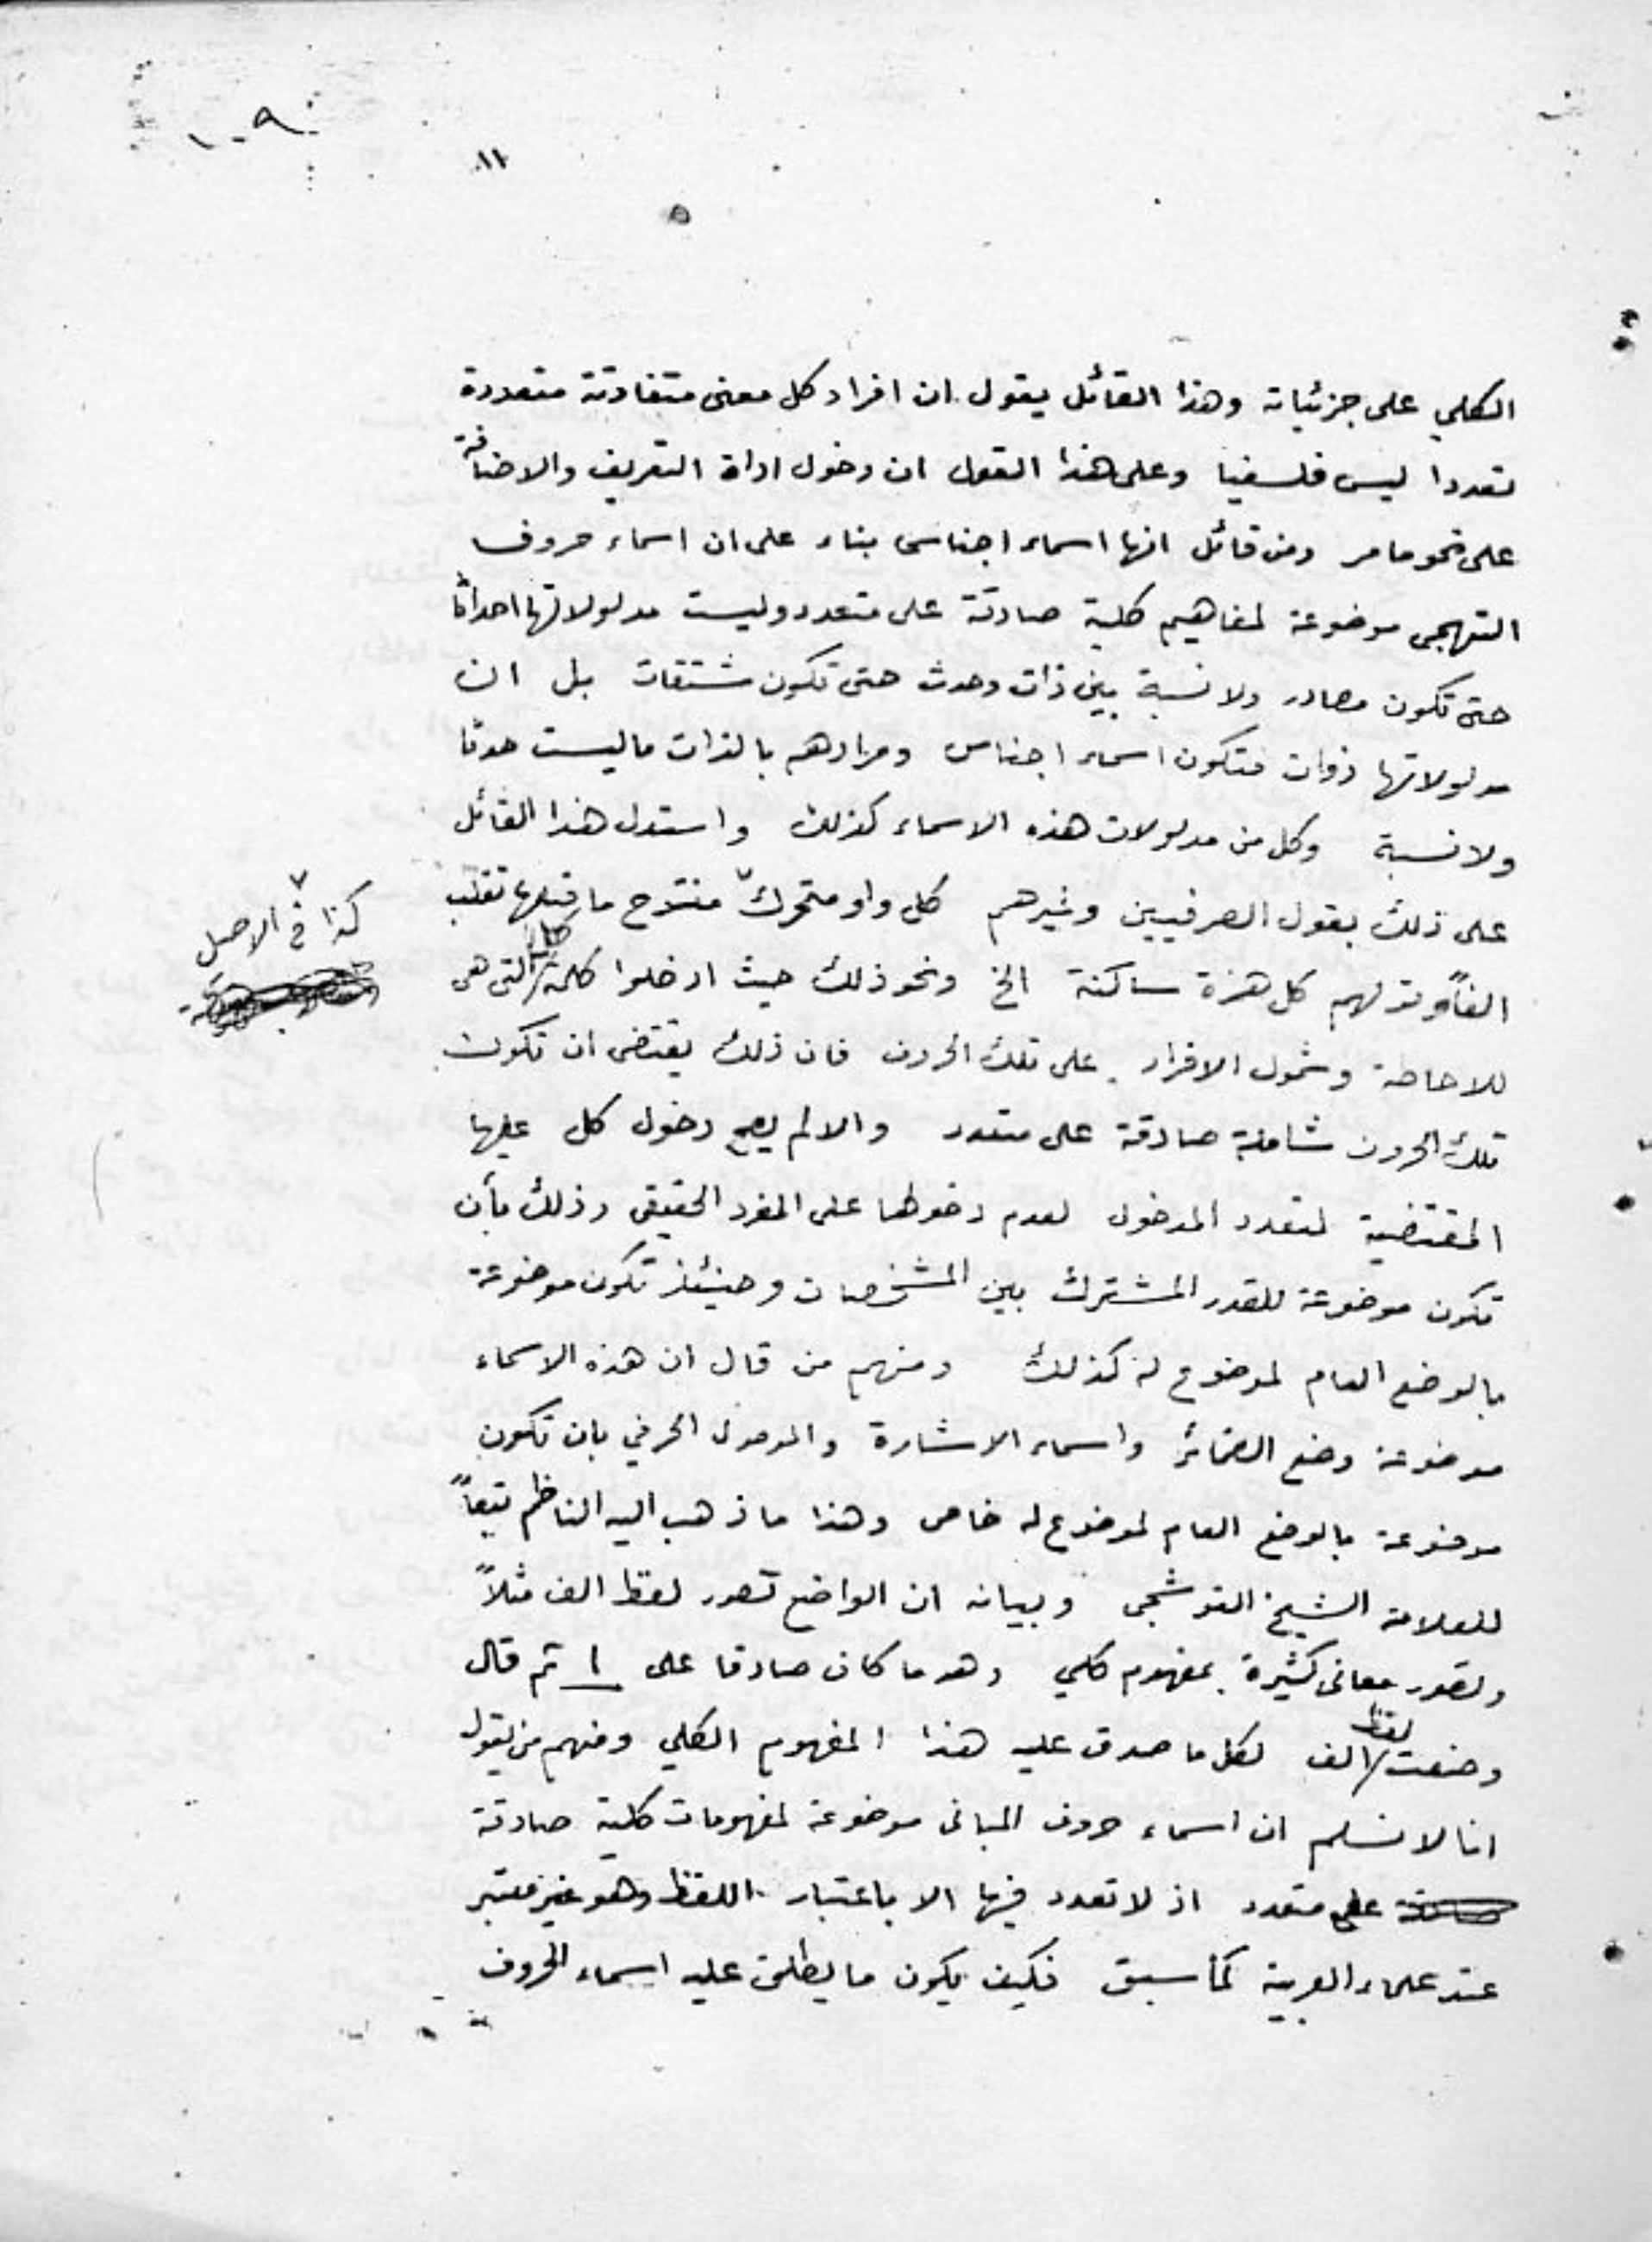 ١٠٩
١١
الكلي على جزئياته وهذا القائل يقول ان افراد كل معنى متفاوتة متعددة
تعددا ليس فلسفيا وعلى هذا القول ان دخول اداة التعريف والاضافة
على نحو ما مر ومن قائل انها اسماء اجناس بناء على ان اسماء حروف
التهجي موضوعة لمفاهيم كلية صادقة على متعدد وليست مدلولاتها احداثا
حتى تكون مصادر ولا نسبة بين ذات وحدث حتى تكون مشتقات بل ان
مدلولاتها ذوات فتكون اسماء اجناس ومرادهم بالذات ما ليست حدثا
ولا نسبة وكل من مدلولات هذه الاسماء كذلك واستدل هذا القائل
على ذلك بقول الصرفيين وغيرهم كل واو متحرك منفتح ما قبلها تقلب
كذا في الاصل
الفاً وقولهم كل همزة ساكنة الخ ونحو ذلك حيث ادخلوا كلمة كل التي هي
للاحاطة وشمول الافراد على تلك الحروف فان ذلك يقتضى ان تكون
تلك الحروف شاملة صادقة على متعدد والا لم يصح دخول كل عليها
المقتضية لتعدد المدخول لعدم دخولها على المفرد الحقيقي وذلك بأن
تكون موضوعة للقدر المشترك بين المشخصات وحينئذ تكون موضوعة
بالوضع العام لموضوع له كذلك ومنهم من قال ان هذه الاسماء
موضوعة وضع الضمائر واسماء الاشارة والموصول الحرفي بان تكون
موضوعة بالوضع العام لموضوع له خاص وهذا ما ذهب اليه الناظم تبعاً
للعلامة الشيخ القوشجي وبيانه ان الواضع تصور لفظ الف مثلاً
وتصور معاني كثيرة بمفهوم كلي وهو ما كان صادقا على ا ثم قال
وضعت لفظ الف لكل ما صدق عليه هذا المفهوم الكلي ومنهم من يقول
انا لا نسلم ان اسماء حروف المباني موضوعة لمفهومات كلية صادقة
على متعدد اذ لا تعدد فيها الا باعتبار اللفظ وهو غير معتبر
عند علماء العربية كما سبق فكيف يكون ما يطلق عليه اسماء الحروف